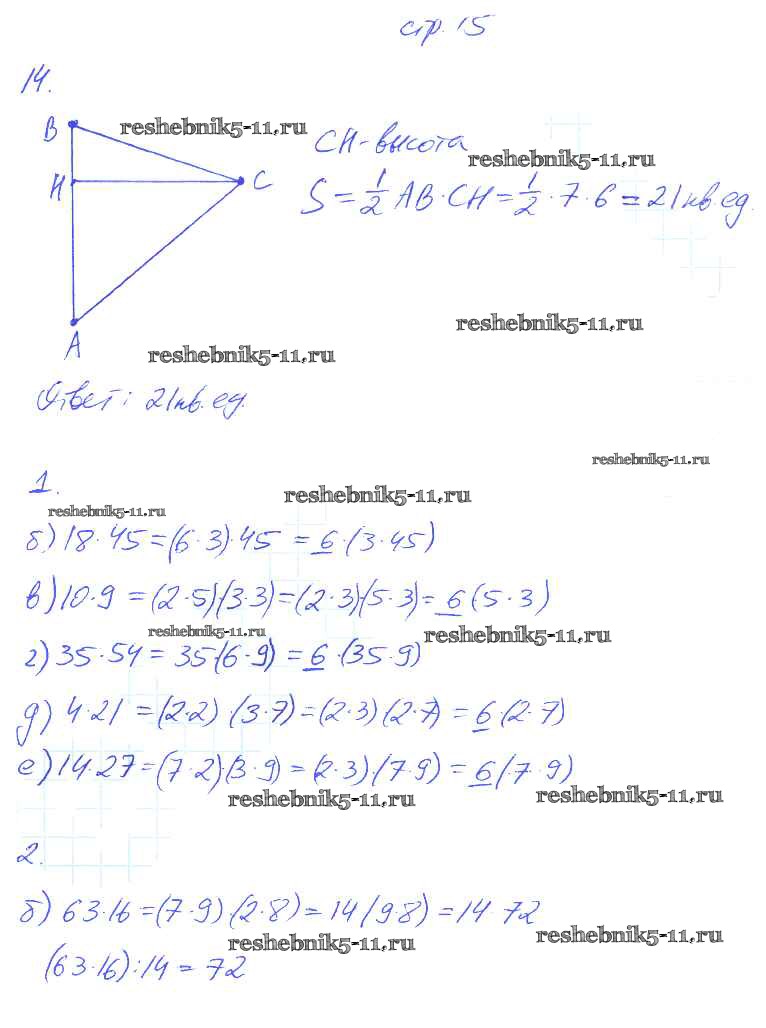 стр. 15
14.
B
reshebnik5-11.ru
CH-высота
reshebnik5-11.ru
H
C
S = 1/2 AB · CH = 1/2 · 7 · 6 = 21 кв. ед.
reshebnik5-11.ru
A
reshebnik5-11.ru
Ответ: 21 кв. ед.
reshebnik5-11.ru
1.
reshebnik5-11.ru
reshebnik5-11.ru
б) 18 · 45 = (6 · 3) · 45 = 6 · (3 · 45)
в) 10 · 9 = (2 · 5) · (3 · 3) = (2 · 3) · (5 · 3) = 6 (5 · 3)
reshebnik5-11.ru
reshebnik5-11.ru
г) 35 · 54 = 35 · (6 · 9) = 6 · (35 · 9)
д) 4 · 21 = (2 · 2) · (3 · 7) = (2 · 3) (2 · 7) = 6 · (2 · 7)
е) 14 · 27 = (7 · 2) · (3 · 9) = (2 · 3) · (7 · 9) = 6 (7 · 9)
reshebnik5-11.ru
reshebnik5-11.ru
2.
б) 63 · 16 = (7 · 9) (2 · 8) = 14 (9 · 8) = 14 · 72
reshebnik5-11.ru
reshebnik5-11.ru
(63 · 16) : 14 = 72